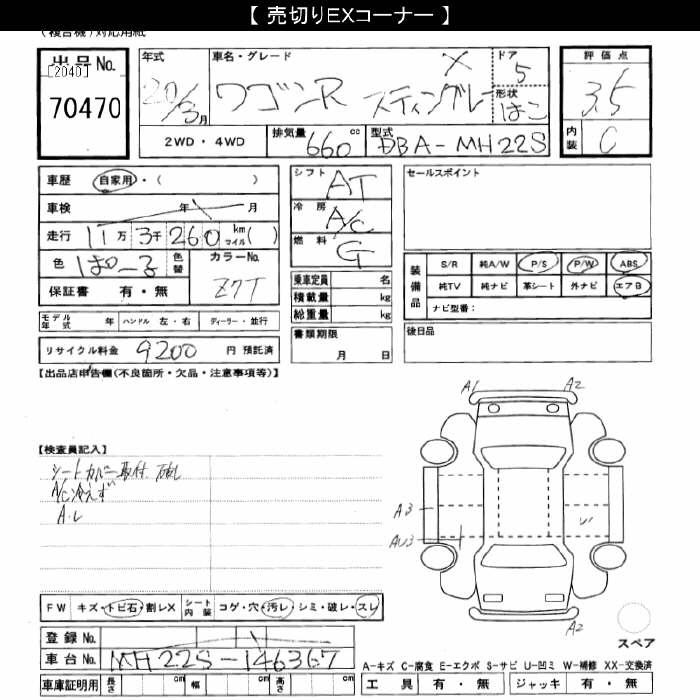 【 売切りEXコーナー 】
(複合機)対応用紙
出品No.
[2040]
70470
年式
20/3月
車名・グレード
ワゴンR スティングレー X
ドア
5
形状
はこ
評価点
3.5
内装
C
2WD・4WD
排気量
660 cc
型式
DBA-MH22S
車歴 自家用・( )
車検 年 月
走行 11万 3千 260 km マイル( )
色 ぱーる 色替
カラーNo.
Z7T
保証書 有・無
シフト AT
冷房 A/C
燃料 G
乗車定員 名
積載量 kg
総重量 kg
セールスポイント
装備品
S/R 純A/W P/S P/W ABS
純TV 純ナビ 革シート 外ナビ エアB
ナビ型番:
モデル年式 年 ハンドル 左・右 ディーラー・並行
リサイクル料金 9200 円 預託済
書類期限
月 日
後日品
【出品店申告欄(不良箇所・欠品・注意事項等)】
【検査員記入】
シートカバー取付
A/C冷えず
A1 A2
A3
AU3
A2
スペア
FW キズ・トビ石・割レX シート内装 コゲ・穴・汚レ・シミ・破レ・スレ
登録No.
車台No. MH22S-146367
車庫証明用 長さ cm 幅 cm 高さ cm
A-キズ C-腐食 E-エクボ S-サビ U-凹ミ W-補修 XX-交換済
工具 有・無 ジャッキ 有・無